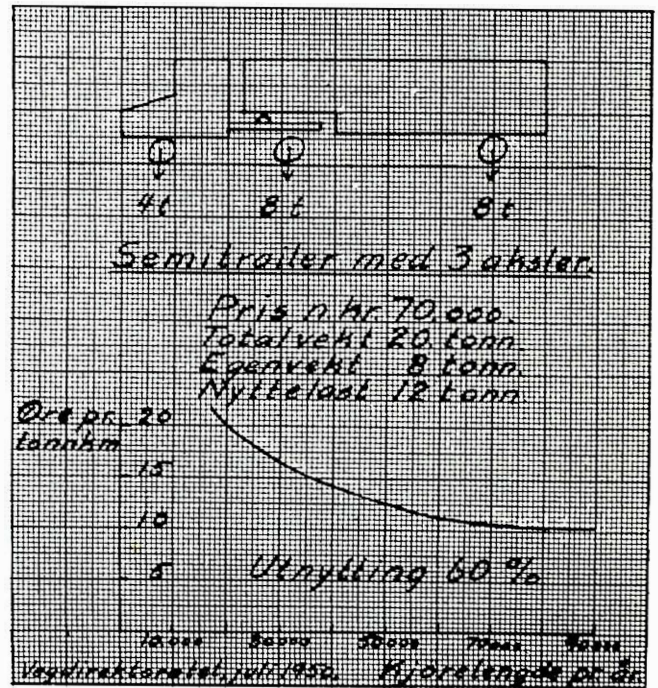 4t 8t 8t
Semitrailer med 3 aksler.
Pris n.kr. 70.000.
Totalvekt 20 tonn.
Egenvekt 8 tonn.
Nyttelast 12 tonn.
Øre pr. 20
tonnkm
15
10
5 Utnytting 60 %
10.000 30000 50000 70000 90000
Vegdirektoratet, juli 1950. Kjørelengde pr. år.